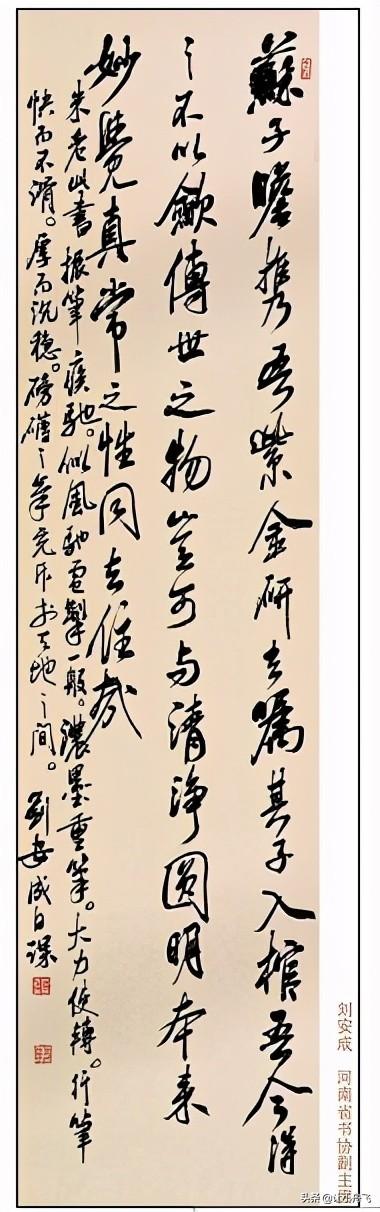 蘇子瞻携吾紫金研去嘱其子入棺吾今得
之不以歛傳世之物豈可与清淨圓明本来
妙覺真常之性同去住哉
米老此書振筆疾馳。似風馳電掣一般。濃墨重筆。大力使轉。行筆
快而不滑。厚而沉穩。磅礴之氣充斥於天地之間。劉安成自課
刘安成 河南省书协副主席
头条